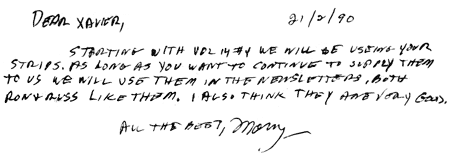 DEAR XAVIER, 21/2/90
STARTING WITH VOL 14 #4 WE WILL BE USEING YOUR
STRIPS. AS LONG AS YOU WANT TO CONTINUE TO SUPPLY THEM
TO US WE WILL USE THEM IN THE NEWSLETTERS, BOTH
RON & RUSS LIKE THEM. I ALSO THINK THEY ARE VERY GOOD.
ALL THE BEST,